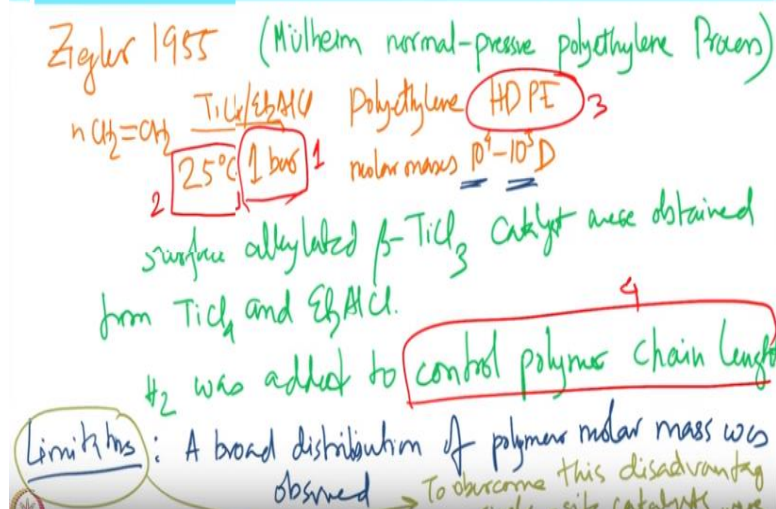 Ziegler 1955 (Mülheim normal-pressure polyethylene Process)
nCH₂=CH₂ TiCl₄/Et₂AlCl Polyethylene HDPE 3
2 25°C 1 bar 1 molar masses 10⁴-10⁵ D
surface alkylated β-TiCl₃ Catalyst were obtained
from TiCl₄ and Et₂AlCl.
4
H₂ was added to control polymer chain length
Limitations: A broad distribution of polymer molar mass was
observed → To overcome this disadvantag
site catalysts were